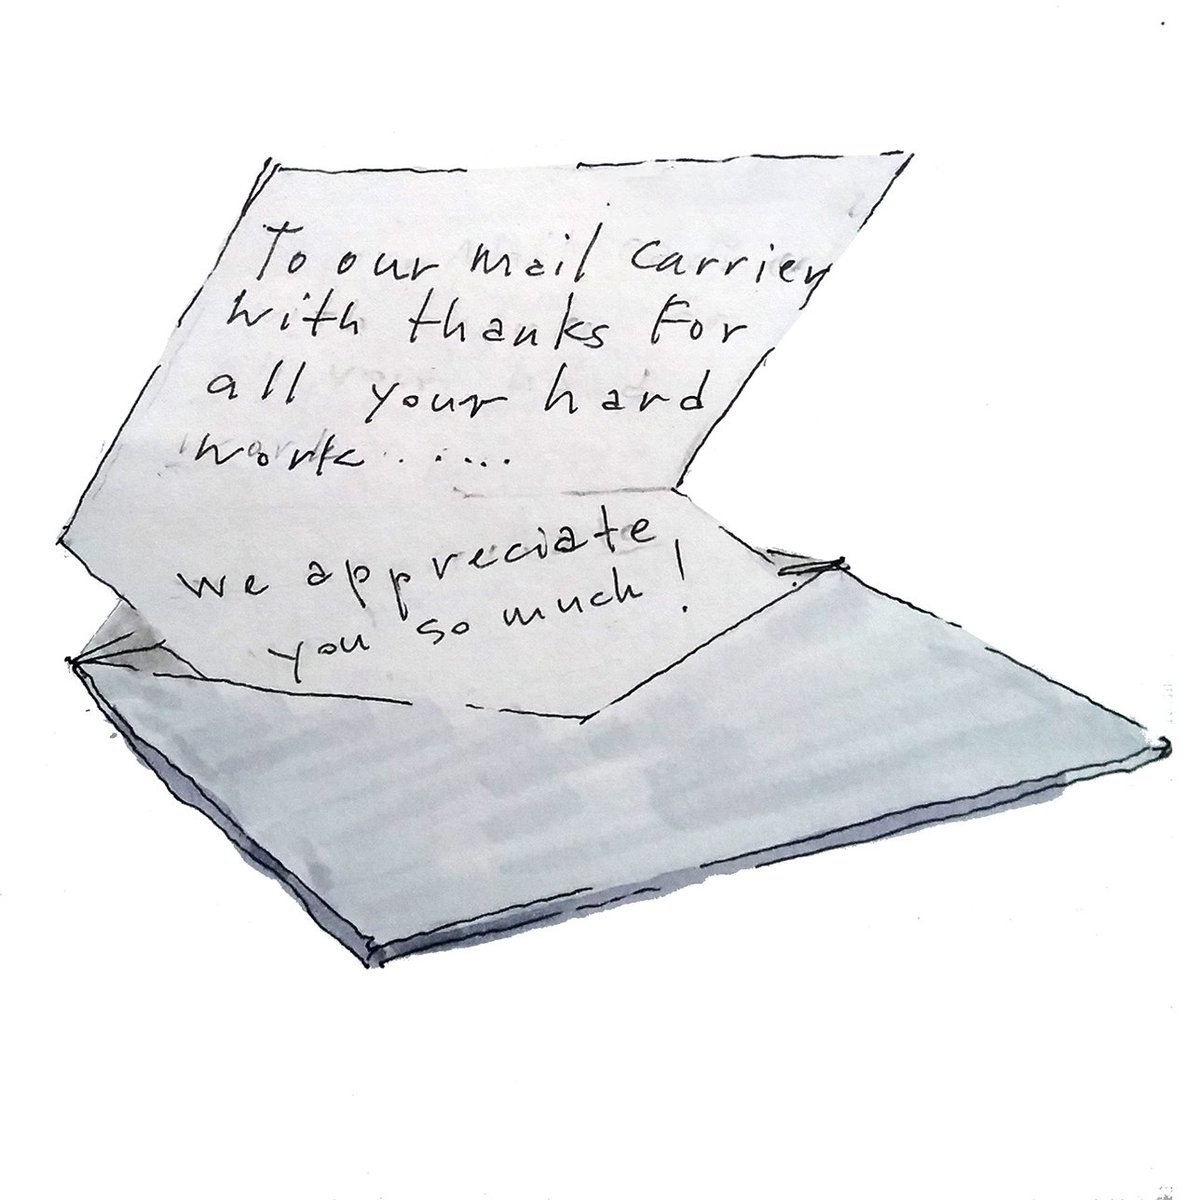 To our mail carrier
with thanks For
all your hard
work.......
we appreciate
you so much!